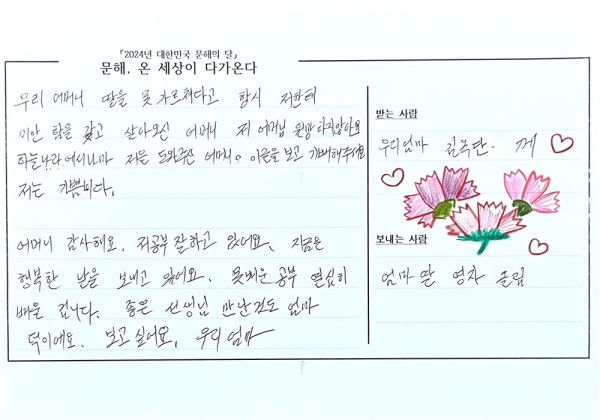 「2024년 대한민국 문해의 달」
문해, 온 세상이 다가온다
우리 어머니 딸을 못 가르쳐다고 항시 저한테
미안 함을 갖고 살아오신 어머니 저 어머님 원망하지않아요
하늘나라에서나마 저를 도와주신 어머니。 이글을 보고 기뻐해주세요
저는 기쁨니다.
어머니 감사해요. 저공부잘하고 있어요. 지금은
행복한 날을 보내고 있어요. 못배운 공부 열심히
배울 겁니다. 좋은 선생님 만난것도 엄마
덕이에요. 보고 싶어요, 우리 엄마
받는 사람
우리엄마 길옥단. 께
보내는 사람
엄마 딸 영자 올림